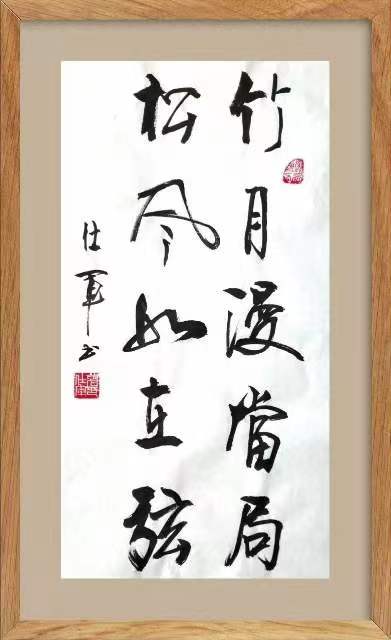 竹月漫當局
松风如在弦
仕軍书